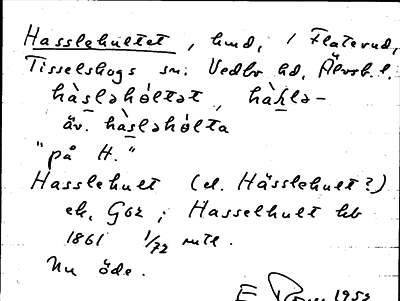 Hasslehultet, hmd, i Flaterud,
Tisselskogs sn; Vedbo hd, Älvsb. l.
hàsləhól̀tət, hàsl̥ə-
äv. hàsləhól̀ta
"på H."
Hasslehult (el. Hässlehult?)
ek. Gsk; Hasselhult kb
1861 1/72 mtl.
Nu öde.
E 1952